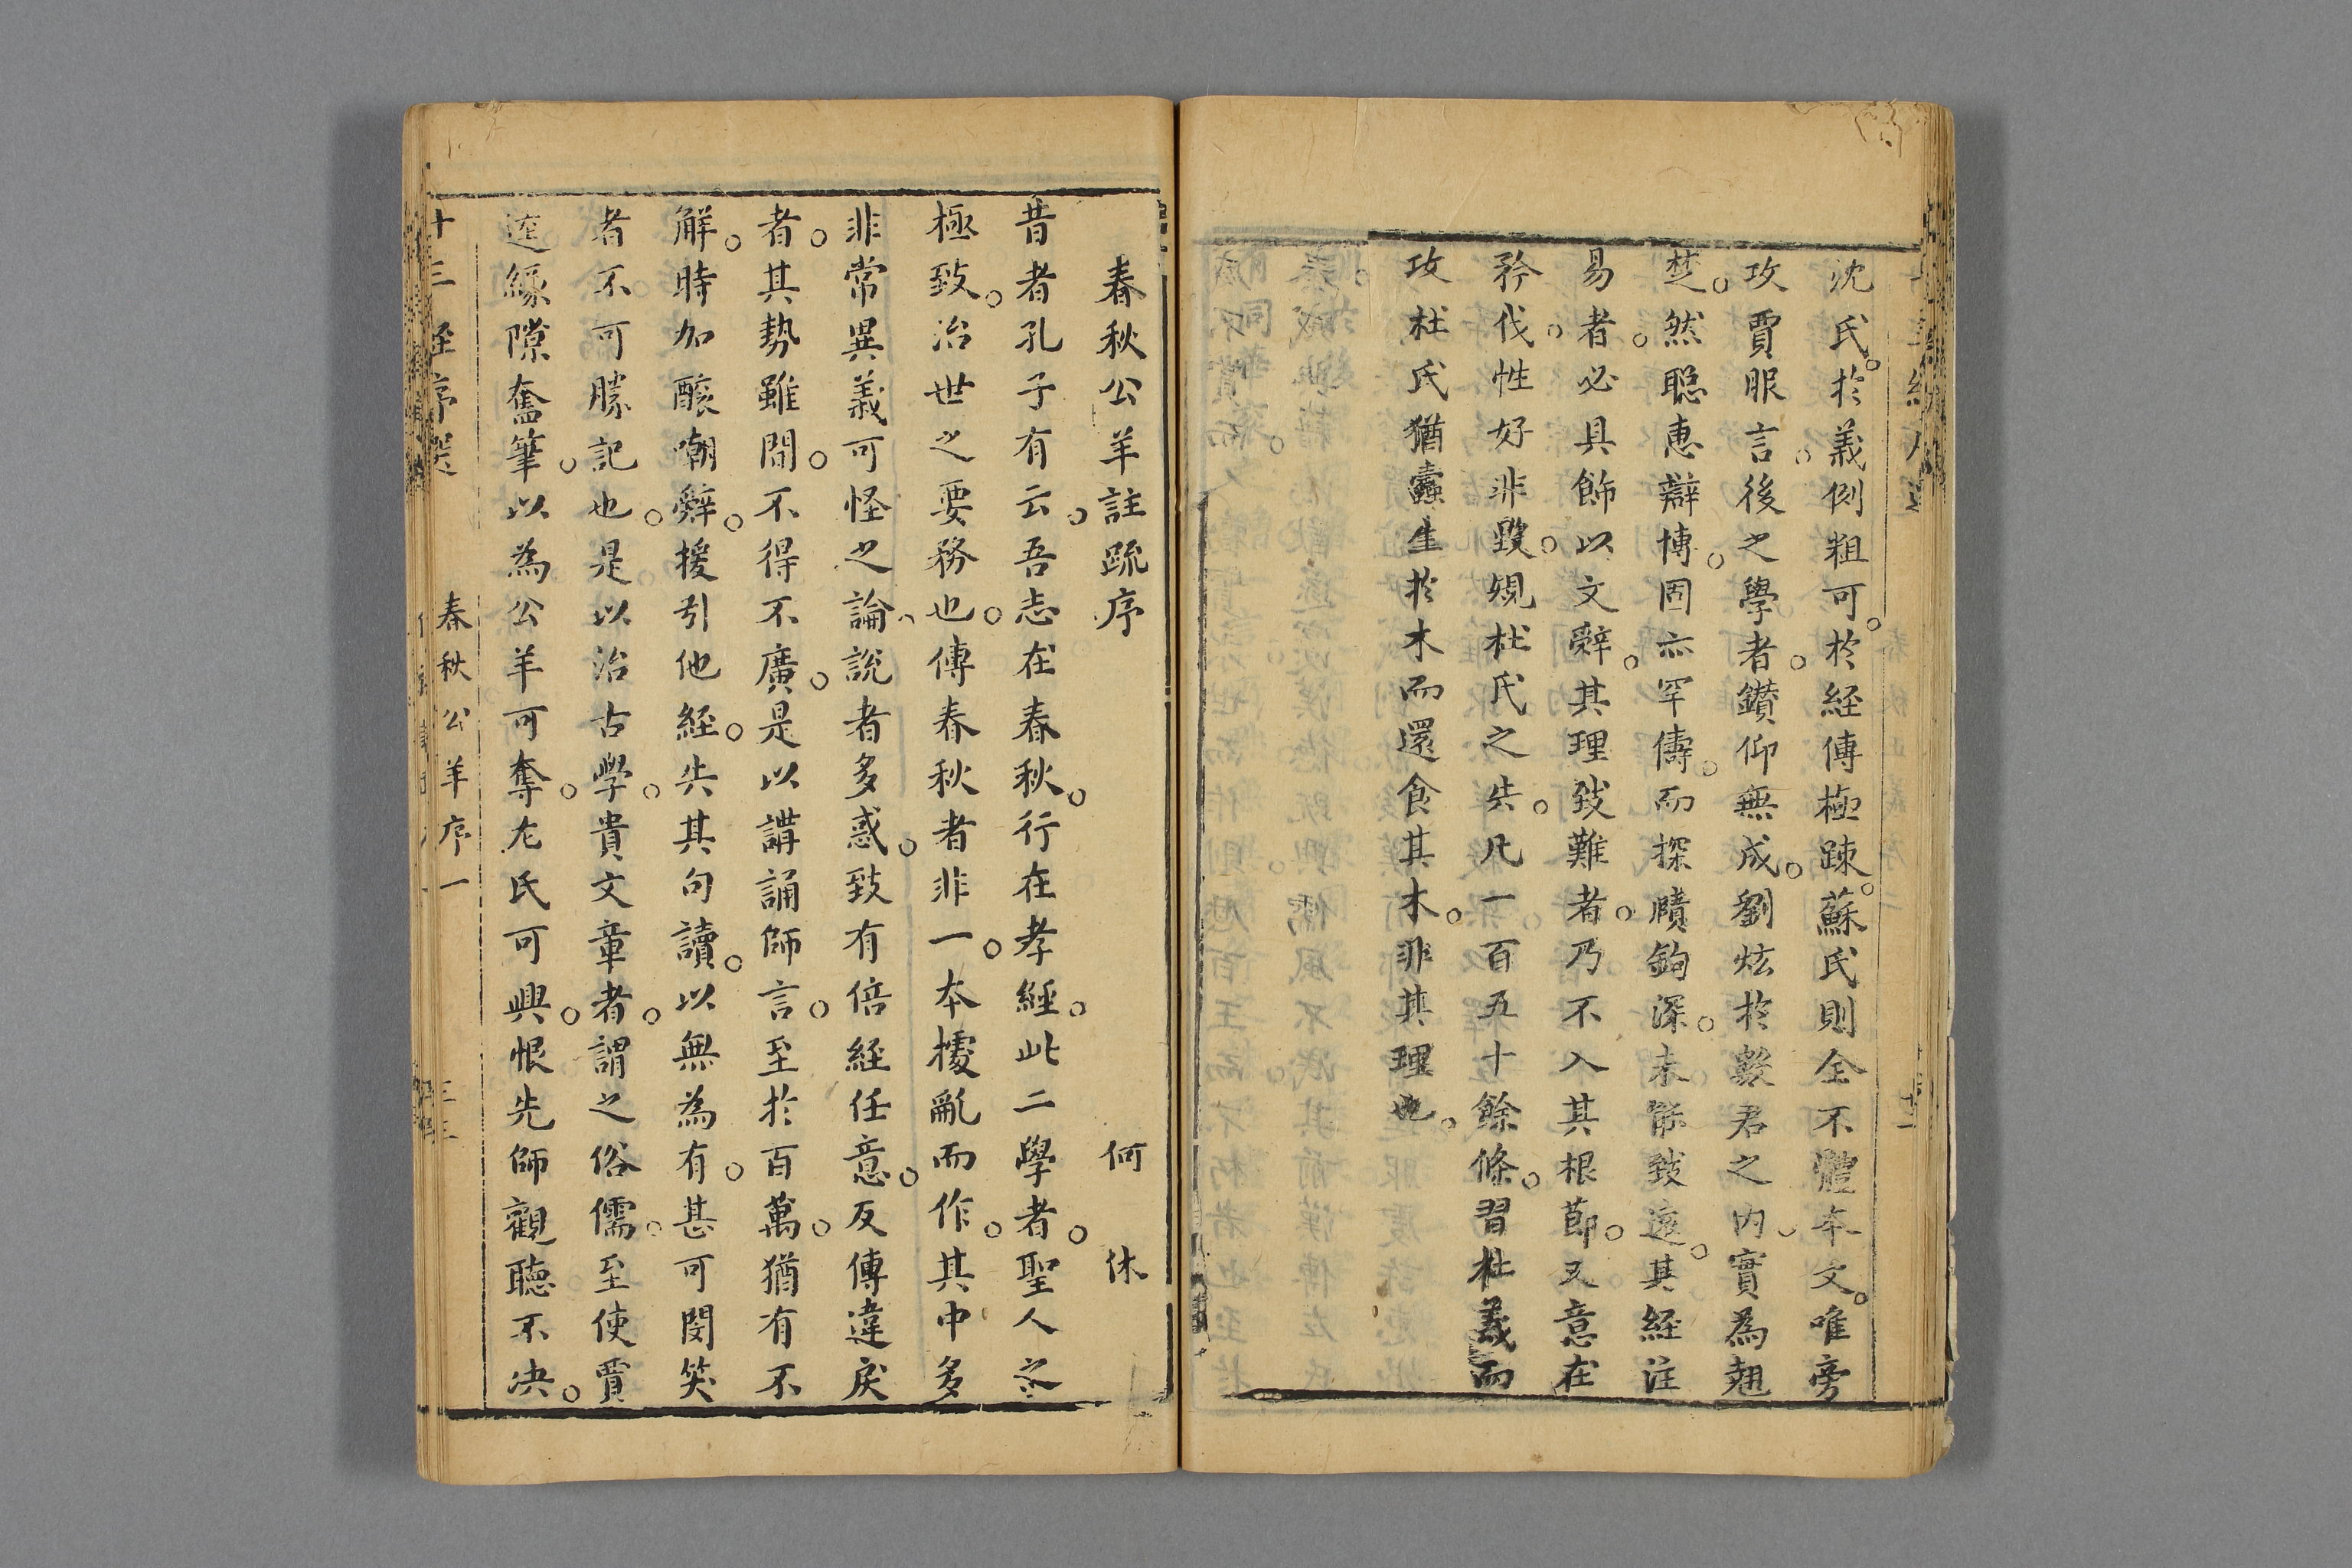 沈氏。於義例粗可。於經傳極踈。蘇氏則全不體本文。唯旁
攻賈服言。後之學者。鑚仰無成。劉炫於數君之內。實為翹
楚。然聦惠辯博。固亦罕儔。而探賾鉤深。未能致遠。其經注
易者。必具飾以文辭。其理致難者。乃不入其根節。又意在
矜伐。性好非毀。規杜氏之失。凡一百五十餘條。習杜義而
攻杜氏猶蠹生於木而還食其木。非其理也。
春秋公羊註疏序 何休
昔者孔子有云。吾志在春秋。行在孝經。此二學者。聖人之
極致。治世之要務也。傳春秋者非一。本據亂而作。其中多
非常異義可怪之論、說者多惑。致有倍經任意。反傳違戾
者。其勢雖問。不得不廣。是以講誦師言。至於百萬。猶有不
解。時加釀嘲辭。援引他經。失其句讀。以無為有。甚可閔笑
者不可勝記也。是以治古學。貴文章者。謂之俗儒。至使賈
逵緣隙奮筆。以為公羊可奪。左氏可興。恨先師觀聽不决。
十三經序選 春秋公羊序一